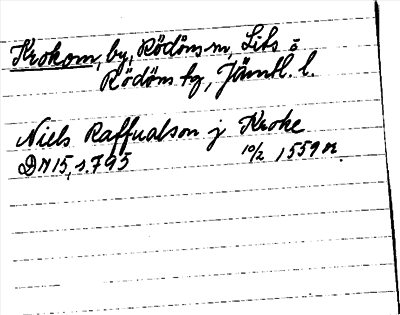 Krokom, by, Rödöns sn, Lits o
Rödöns tg, Jämtl. l.
Niels Raffualson j Kroke
DN 15, s. 795 10/2 1559 n.